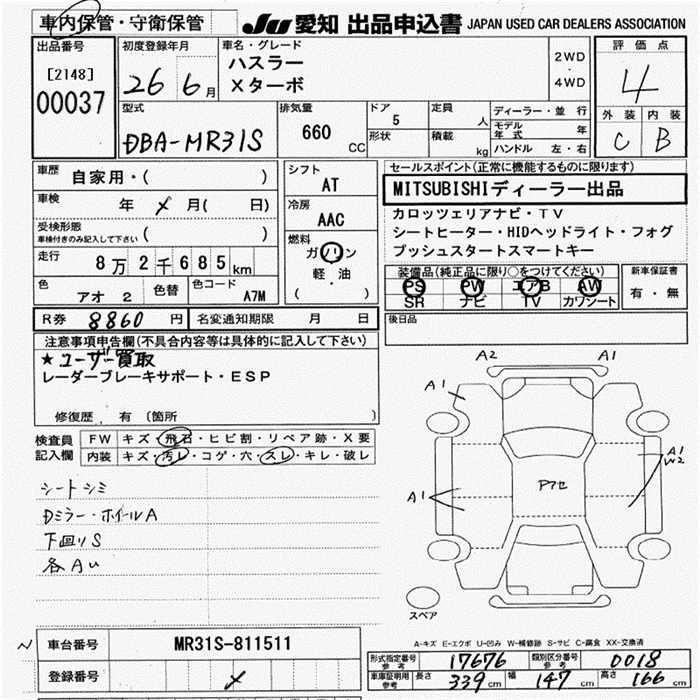 車内保管・守衛保管
JU 愛知 出品申込書 JAPAN USED CAR DEALERS ASSOCIATION
出品番号 [2148] 00037
初度登録年月 26 6月
車名・グレード
ハスラー
Xターボ
2WD・4WD
評価点 4
外装 内装
C B
型式 DBA-MR31S
排気量 660 CC
ドア 5
形状
定員 人
積載 kg
ディーラー・並行
モデル年式 年
ハンドル 左・右
車歴 自家用・( )
車検 年 月( 日)
受検形態
車検付きのみ記入して下さい ( )
走行 8万2千685km
色 アオ 2 色替 色コード A7M
シフト AT
冷房 AAC
燃料
ガソリン
軽・油
( )
セールスポイント(正常に機能するものに限ります)
MITSUBISHIディーラー出品
カロッツェリアナビ・TV
シートヒーター・HIDヘッドライト・フォグ
プッシュスタートスマートキー
装備品(純正品に限り○をつけてください)
PS PW エアB AW
SR ナビ TV カワシート
新車保証書
有・無
R券 8860円 名変通知期限 月 日
後日品
注意事項申告欄(不具合内容等は具体的に記入して下さい)
★ユーザー買取
レーダーブレーキサポート・ESP
修復歴 有 (箇所 )
検査員記入欄
FW キズ・飛石・ヒビ割・リペア跡・X要
内装 キズ・汚レ・コゲ・穴・スレ・キレ・破レ
シートシミ
Dミラー・ホイールA
下回りS
各AU
A2 A1
A1
A1
W2
A1
Pアセ
スペア
A-キズ E-エクボ U-凹み W-補修跡 S-サビ C-腐食 XX-交換済
車台番号 MR31S-811511
登録番号
形式指定番号 参考 17676 類別区分番号 参考 0018
車庫証明用 参考 長さ 339cm 幅 147cm 高さ 166cm